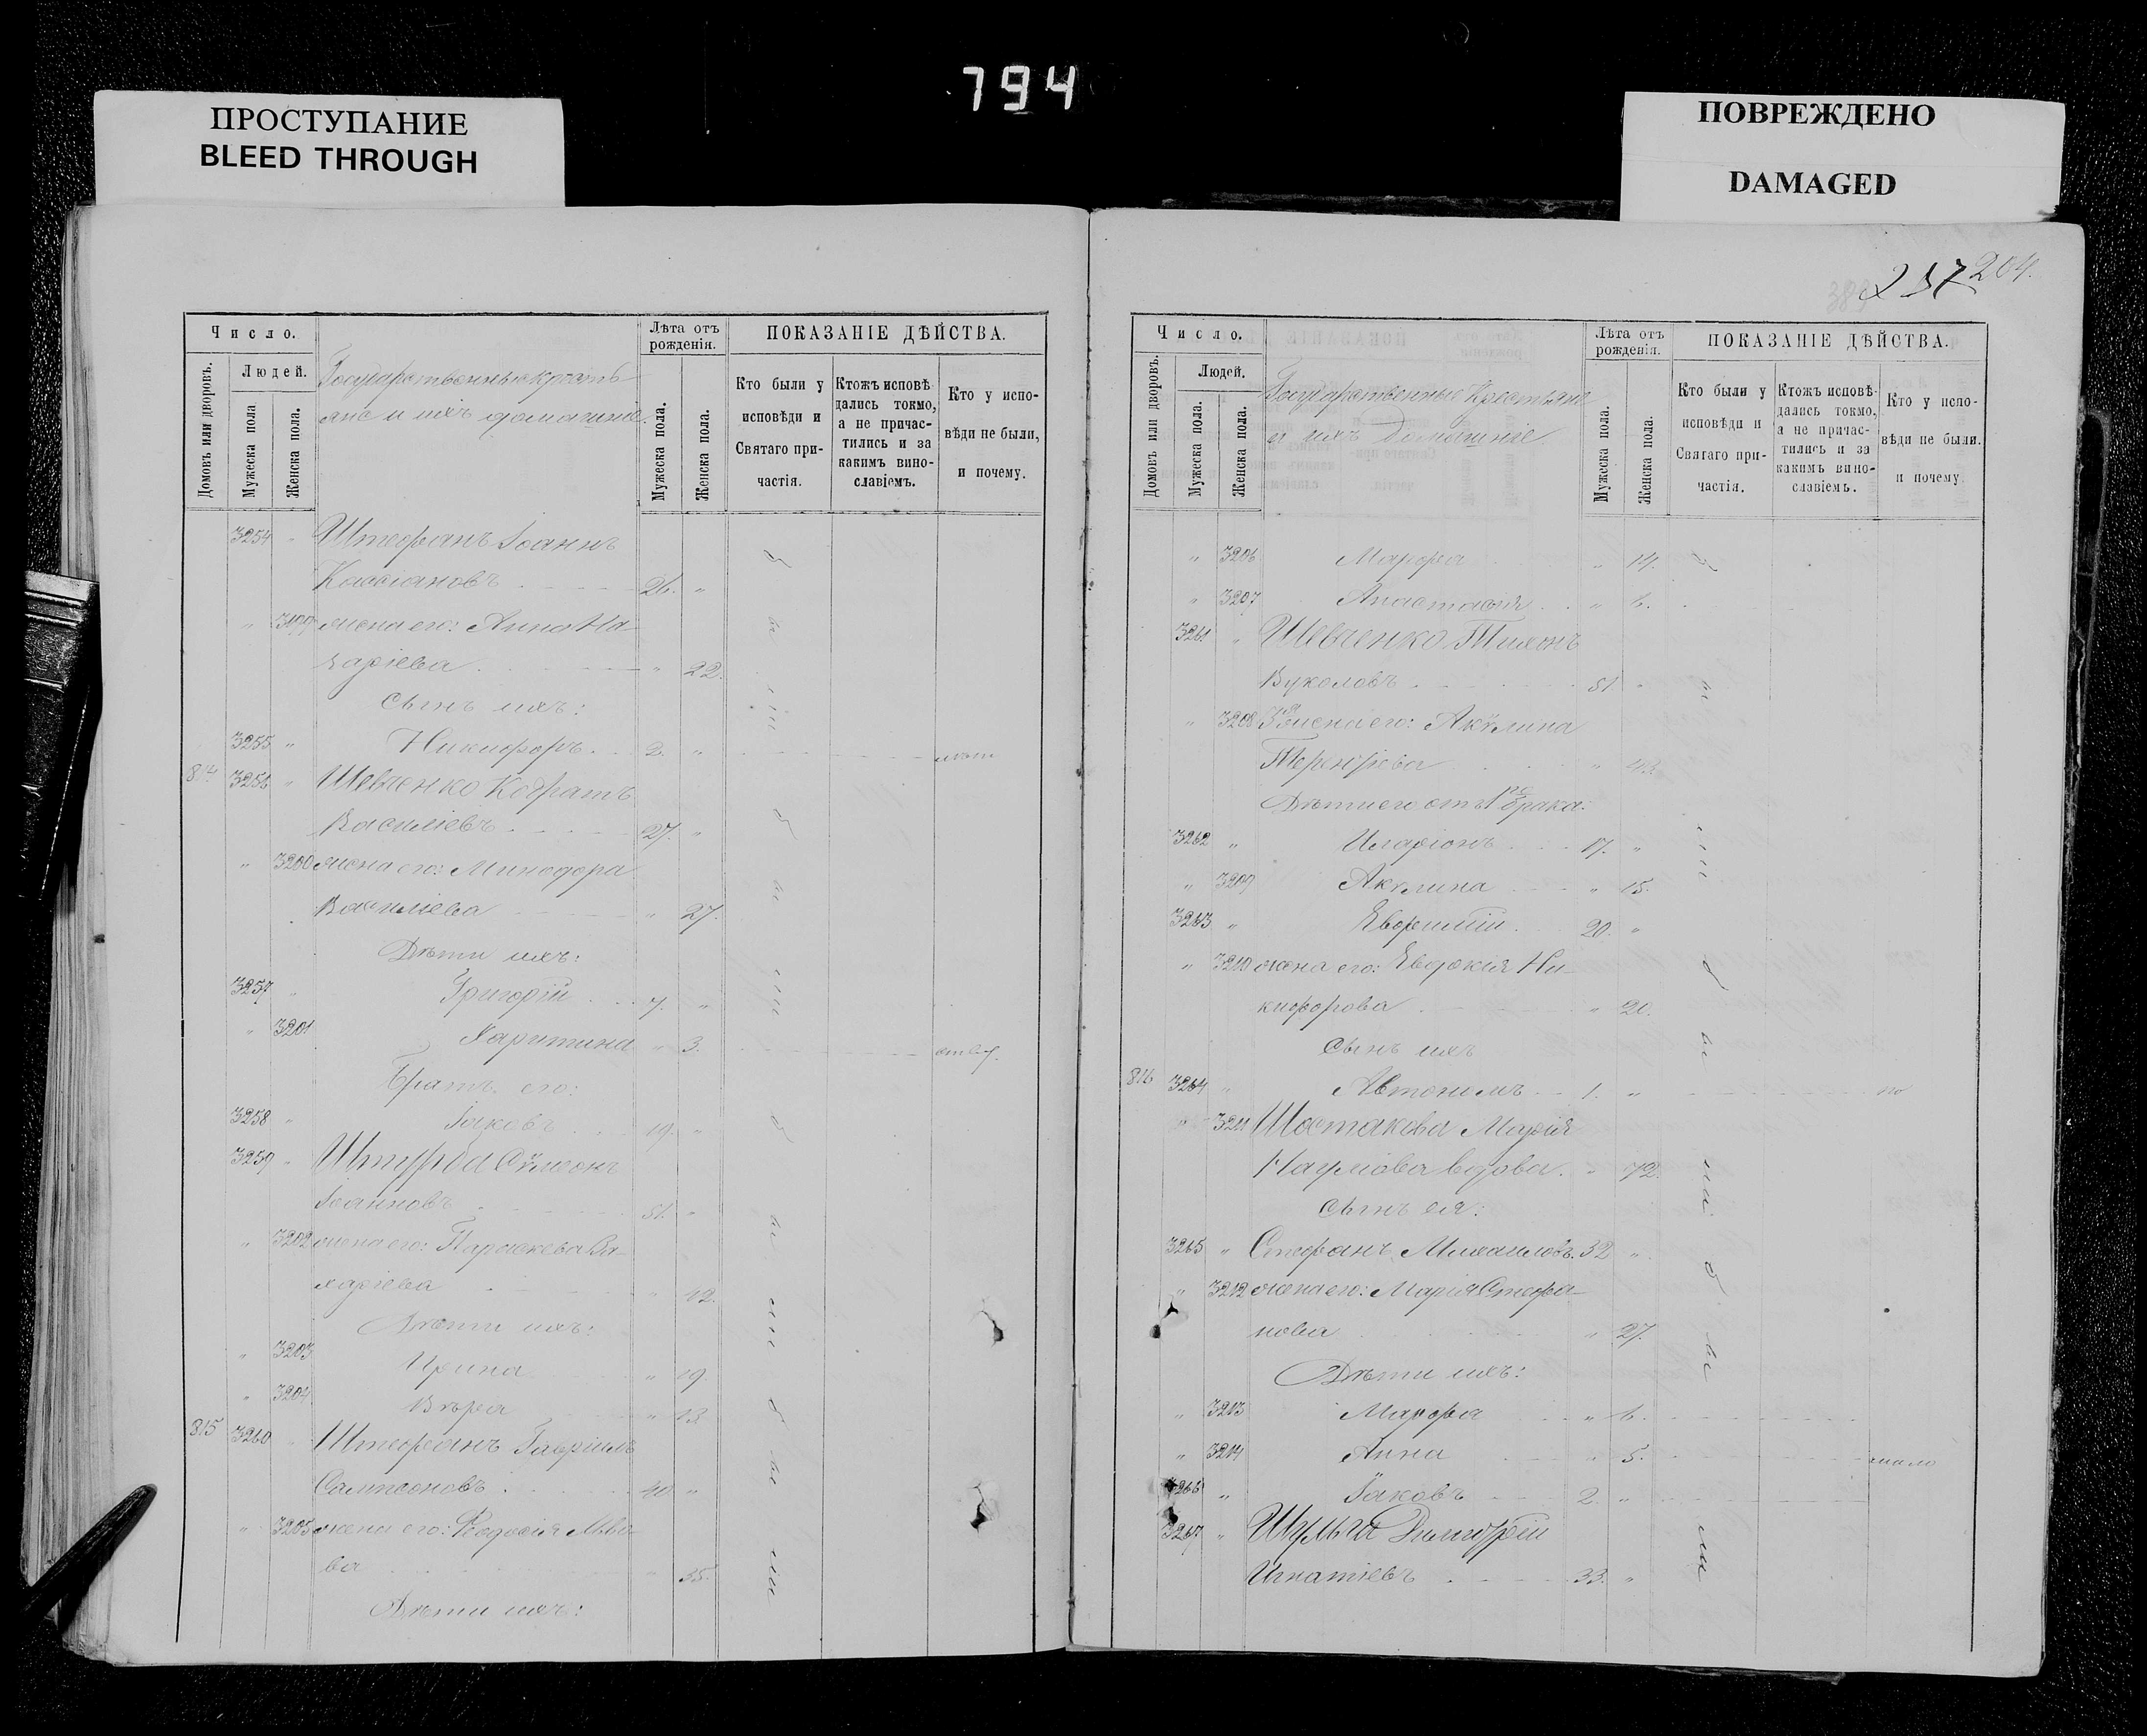 794
ПРОСТУПАНИЕ
BLEED THROUGH
ПОВРЕЖДЕНО
DAMAGED
204.
Число.
Людей.
Домовъ или дворовъ.
Мужеска пола
Женска пола.
Государственные кресть-
яне и ихъ домашніе.
Лѣта отъ рожденія.
Мужеска пола.
Женска пола.
ПОКАЗАНІЕ ДѢЙСТВА.
Кто были у исповѣди и Святаго при-частія.
Ктожъ исповѣ дались токмо, а не причас-тились и за какимъ вино-славіемъ.
Кто у испо-вѣди не были, и почему.
3254 Штефанъ Іоаннъ
Кассіановъ 26. "
" 3199 жена его: Анна На-
заріева " 22.
Сынъ ихъ:
3255 " Никифоръ 2. "
814 3256 " Шевченко Кодратъ
Василіевъ 27. "
" 3200 жена его: Минодора
Василіева " 27.
Дѣти ихъ:
3257 " Григорій 7. "
" 3201 Харитина " 3.
Братъ его:
3258 " Іаковъ 19. "
3259 " Штурба Сѵмеонъ
Іоанновъ 51. "
" 3202 жена его: Параскева За-
харіева " 42.
Дѣти ихъ:
" 3203 Ирина " 19.
" 3204 Вѣра " 13.
815 3260 " Штефанъ Гавріилъ
Сампсоновъ 40 "
" 3205 жена его: Ѳеодосія Льво-
ва " 35.
Дѣти ихъ:
Число.
Людей.
Домовъ или дворовъ.
Мужеска пола.
Женска пола.
Государственные Крестьяне
и ихъ домашніе
Лѣта отъ рожденія.
Мужеска пола.
Женска пола.
ПОКАЗАНІЕ ДѢЙСТВА.
Кто были у исповѣди и Святаго при-частія.
Ктожъ исповѣ-дались токмо, а не причас-тились и за какимъ вино-славіемъ.
Кто у испо-вѣди не были. и почему.
" 3206 Марфа " 14.
" 3207 Анастасія " 6.
3261 " Шевченко Тихонъ
Вуколовъ 51 "
" 3208 жена его: Акѵлина
Терентіева "
Дѣти его отъ 1го брака:
3262 " Иларіонъ 17. "
" 3209 Акѵлина " 15.
3263 " Евфимій 20. "
" 3210 жена его: Евдокія Ни-
кифорова " 20.
Сынъ ихъ
816 3264 " Автономъ 1. "
" 3211 Шостакова Марія
Наумова вдова. " 72.
Сынъ ея:
3265 " Стефанъ Михаиловъ. 32 "
" 3212 жена его: Марія Стефа-
нова " 27.
Дѣти ихъ:
" 3213 Марфа " 6.
" 3214 Анна " 5.
3266 " Іаковъ 2. "
3267 " Шульга Димитрій
Игнатіевъ 33. "